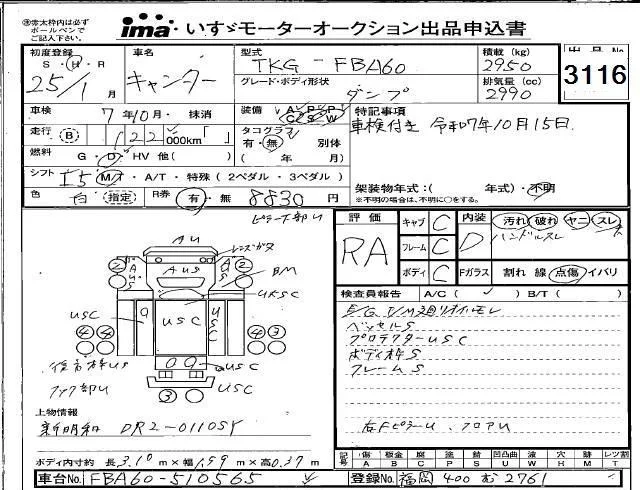 ※赤太枠内は必ずボールペンでご記入下さい。
ima いすゞモーターオークション出品申込書
初度登録 S・H・R 25/1月
車名 キャンター
型式 TKG-FBA60
積載(kg) 2950
出品No 3116
グレード・ボディ形状 ダンプ
排気量(cc) 2990
車検 7年10月・抹消
装備 A P P C S W
特記事項
車検付き 令和7年10月15日
走行 B 122,000km「 」
タコグラフ 有・無 別体 ( 年 月)
燃料 G・D・HV 他( )
シフト I5 M/T・A/T・特殊(2ペダル・3ペダル)
架装物年式:( 年式)・不明
※不明の場合は、不明に○をする。
色 白 指定 R券 有・無 8830円
評価 RA
キャブ C
フレーム C
ボディ C
内装 D 汚れ 破れ ヤニ スレ
ハンドルスレ
Fガラス 割れ 線 点傷 イバリ
AU
レンズガタ
AUS
BM
UKSC
USC
USC
USC
USC
フック部U
USC
検査員報告 A/C( ✓ ) B/T( )
E/G T/M廻りオイルモレ
ベッセルS
プロテクターUSC
ボディ枠S
フレームS
右FピラーU、フロアU
上物情報
新明和 DR2-0110SY
ボディ内寸約 長3.10m×幅1.59m×高0.37m
記号 傷A 板金B 腐C 塗P 錆S 凹U 凸凹W 欠H ヒビM レツ割T
車台No. FBA60-510565
登録No. 福岡400 む2761